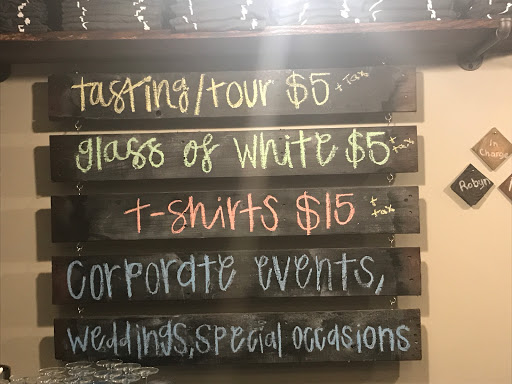 tasting/tour $5 + Tax
glass of white $5 + tax
t-shirts $15 + tax
corporate events,
weddings, special occasions
In Charge
Robyn